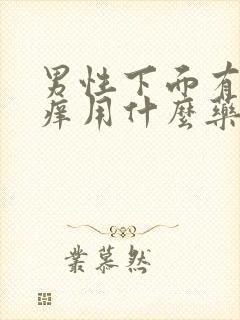 男性下面有
痒用什麼藥
業慕然